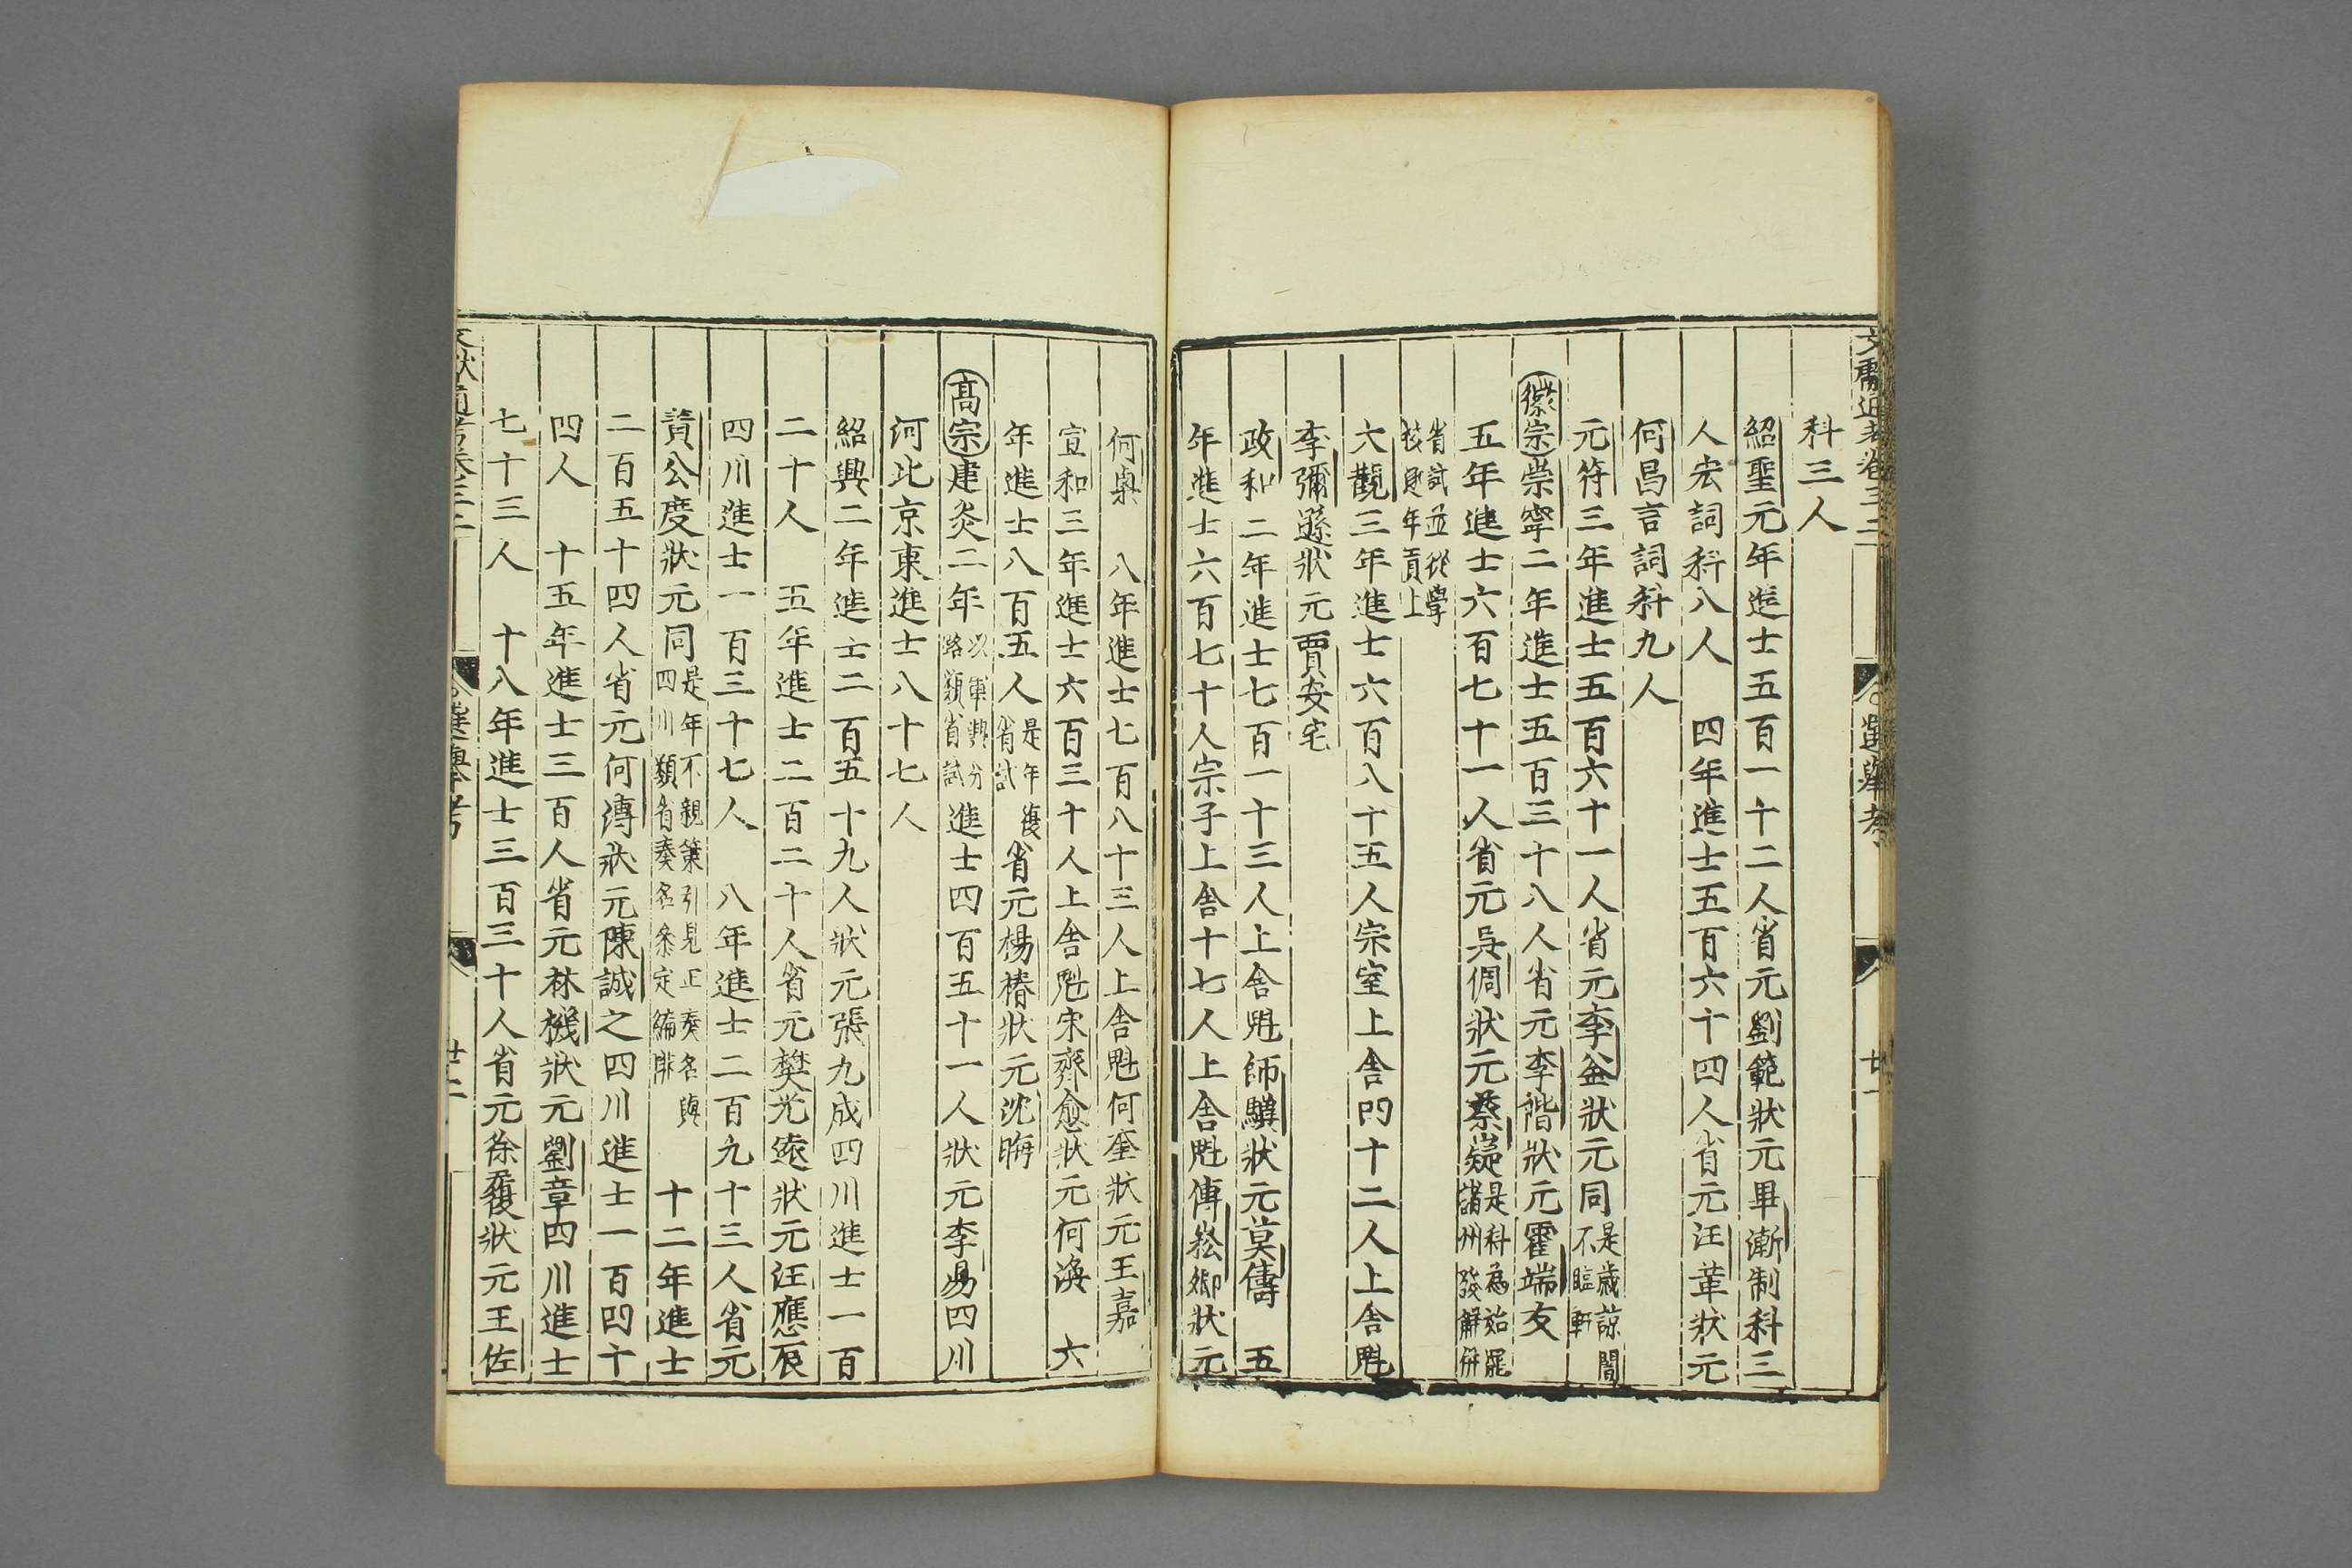 文獻通考卷三十二
選舉考
廿一
科三人
紹聖元年進士五百一十二人省元劉範狀元畢漸制科三
人宏詞科八人　四年進士五百六十四人省元汪革狀元
何昌言詞科九人
元符三年進士五百六十一人省元李釜狀元同是歲諒闇不臨軒
徽宗崇寧二年進士五百三十八人省元李階狀元霍端友
五年進士六百七十一人省元吳倜狀元蔡嶷是科為始罷諸州發解併
省試並從學校逐年貢上
大觀三年進士六百八十五人宗室上舍門十二人上舍魁
李彌遜狀元賈安宅
政和二年進士七百一十三人上舍魁師驥狀元莫儔　五
年進士六百七十人宗子上舍十七人上舍魁傅崧卿狀元
何㮚　八年進士七百八十三人上舍魁何奎狀元王嘉
宣和三年進士六百三十人上舍魁宋齊愈狀元何渙　六
年進士八百五人是年復省試省元楊椿狀元沈晦
高宗建炎二年以軍興分路類省試進士四百五十一人狀元李易四川
河北京東進士八十七人
紹興二年進士二百五十九人狀元張九成四川進士一百
二十人　五年進士二百二十人省元樊光遠狀元汪應辰
四川進士一百三十七人　八年進士二百九十三人省元
黃公度狀元同是年不親策引見正奏名與四川類省奏名參定編排　十二年進士
二百五十四人省元何溥狀元陳誠之四川進士一百四十
四人　十五年進士三百人省元林機狀元劉章四川進士
七十三人　十八年進士三百三十人省元徐履狀元王佐
選舉考
廿二